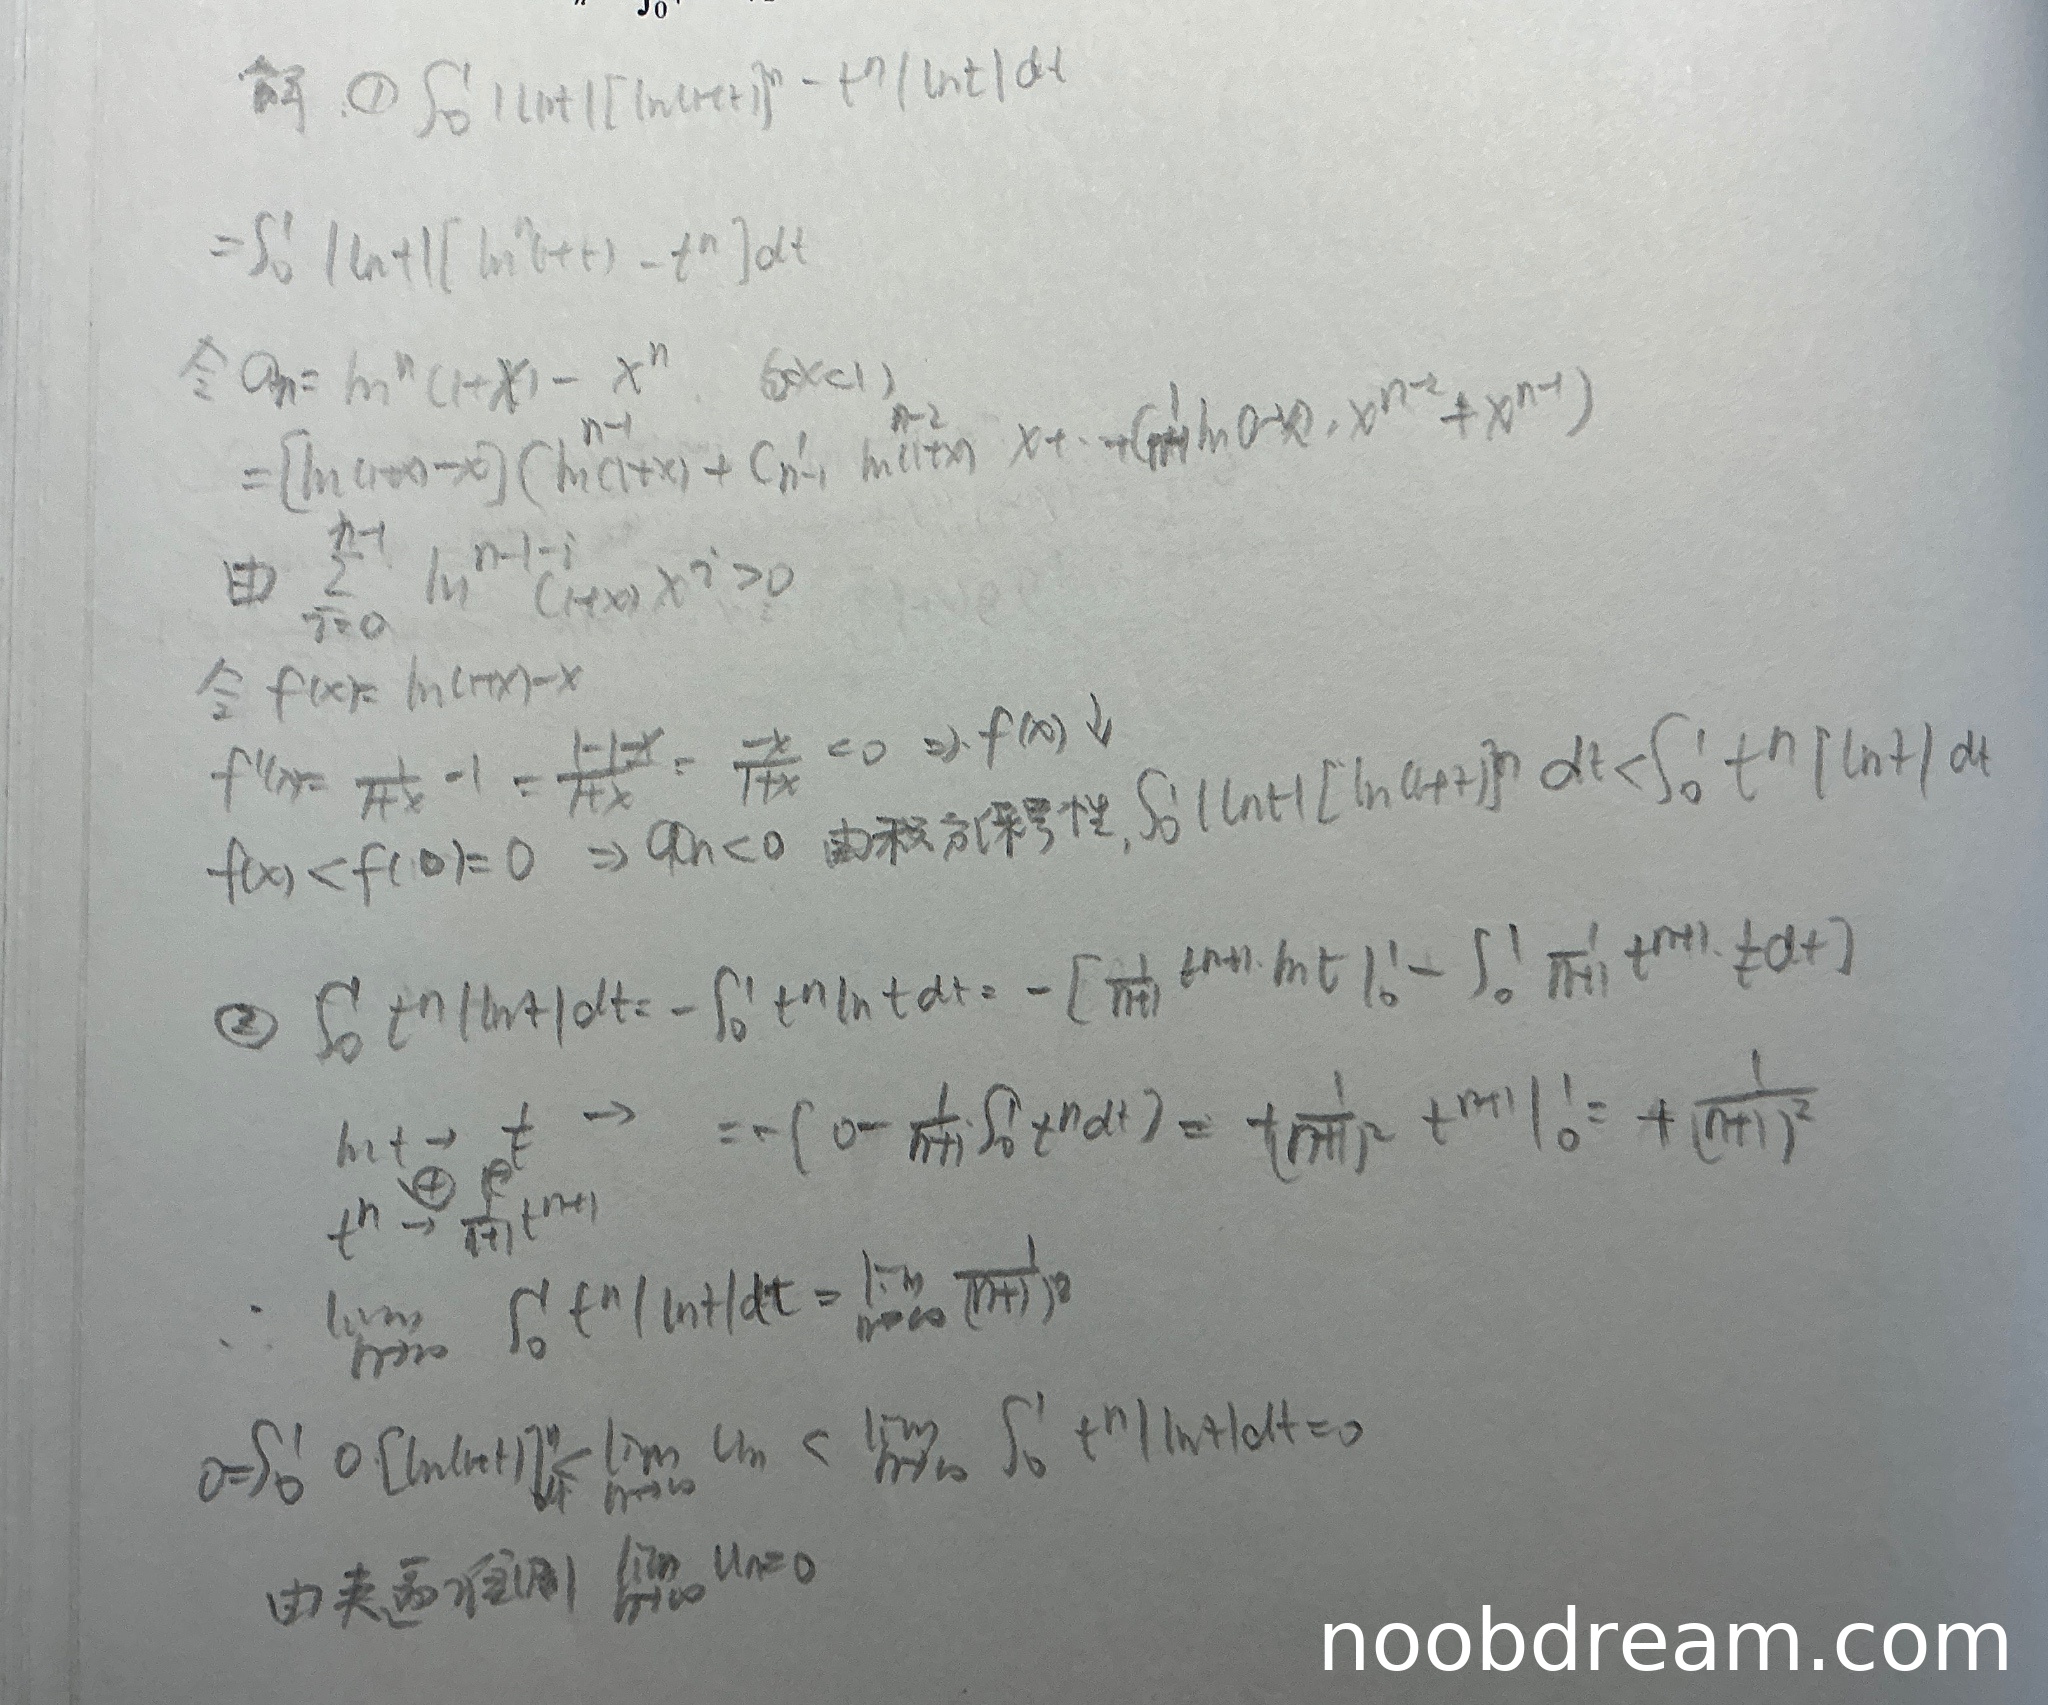 解. ① ∫₀¹ |lnt|[ln(1+t)]ⁿ - tⁿ|lnt|dt
= ∫₀¹ |lnt|[lnⁿ(1+t) - tⁿ]dt
令 aₙ = lnⁿ(1+x) - xⁿ. (0<x<1)
= [ln(1+x)-x](lnⁿ⁻¹(1+x) + C¹ₙ₋₁ lnⁿ⁻²(1+x) x + … + ln(1+x)·xⁿ⁻² + xⁿ⁻¹)
由 Σᵢ₌₀ⁿ⁻¹ lnⁿ⁻¹⁻ⁱ(1+x) xⁱ > 0
令 f(x) = ln(1+x) - x
f'(x) = 1/(1+x) - 1 = (1-1-x)/(1+x) = -x/(1+x) < 0 ⇒ f(x) ↓
f(x) < f(0) = 0 ⇒ aₙ < 0 由积分保号性, ∫₀¹ |lnt|[ln(1+t)]ⁿ dt < ∫₀¹ tⁿ|lnt|dt
② ∫₀¹ tⁿ|lnt|dt = -∫₀¹ tⁿ ln t dt = -[1/(n+1) tⁿ⁺¹·lnt |₀¹ - ∫₀¹ 1/(n+1) tⁿ⁺¹·1/t dt]
lnt → 1/t → = -[0 - 1/(n+1) ∫₀¹ tⁿdt] = +1/(n+1)² tⁿ⁺¹|₀¹ = +1/(n+1)²
⊕
tⁿ → 1/(n+1) tⁿ⁺¹
∴ lim n→∞ ∫₀¹ tⁿ|lnt|dt = lim n→∞ 1/(n+1)²
0 = ∫₀¹ 0·[ln(1+t)]ⁿdt < lim n→∞ uₙ < lim n→∞ ∫₀¹ tⁿ|lnt|dt = 0
由夹逼准则 lim n→∞ uₙ = 0
noobdream.com